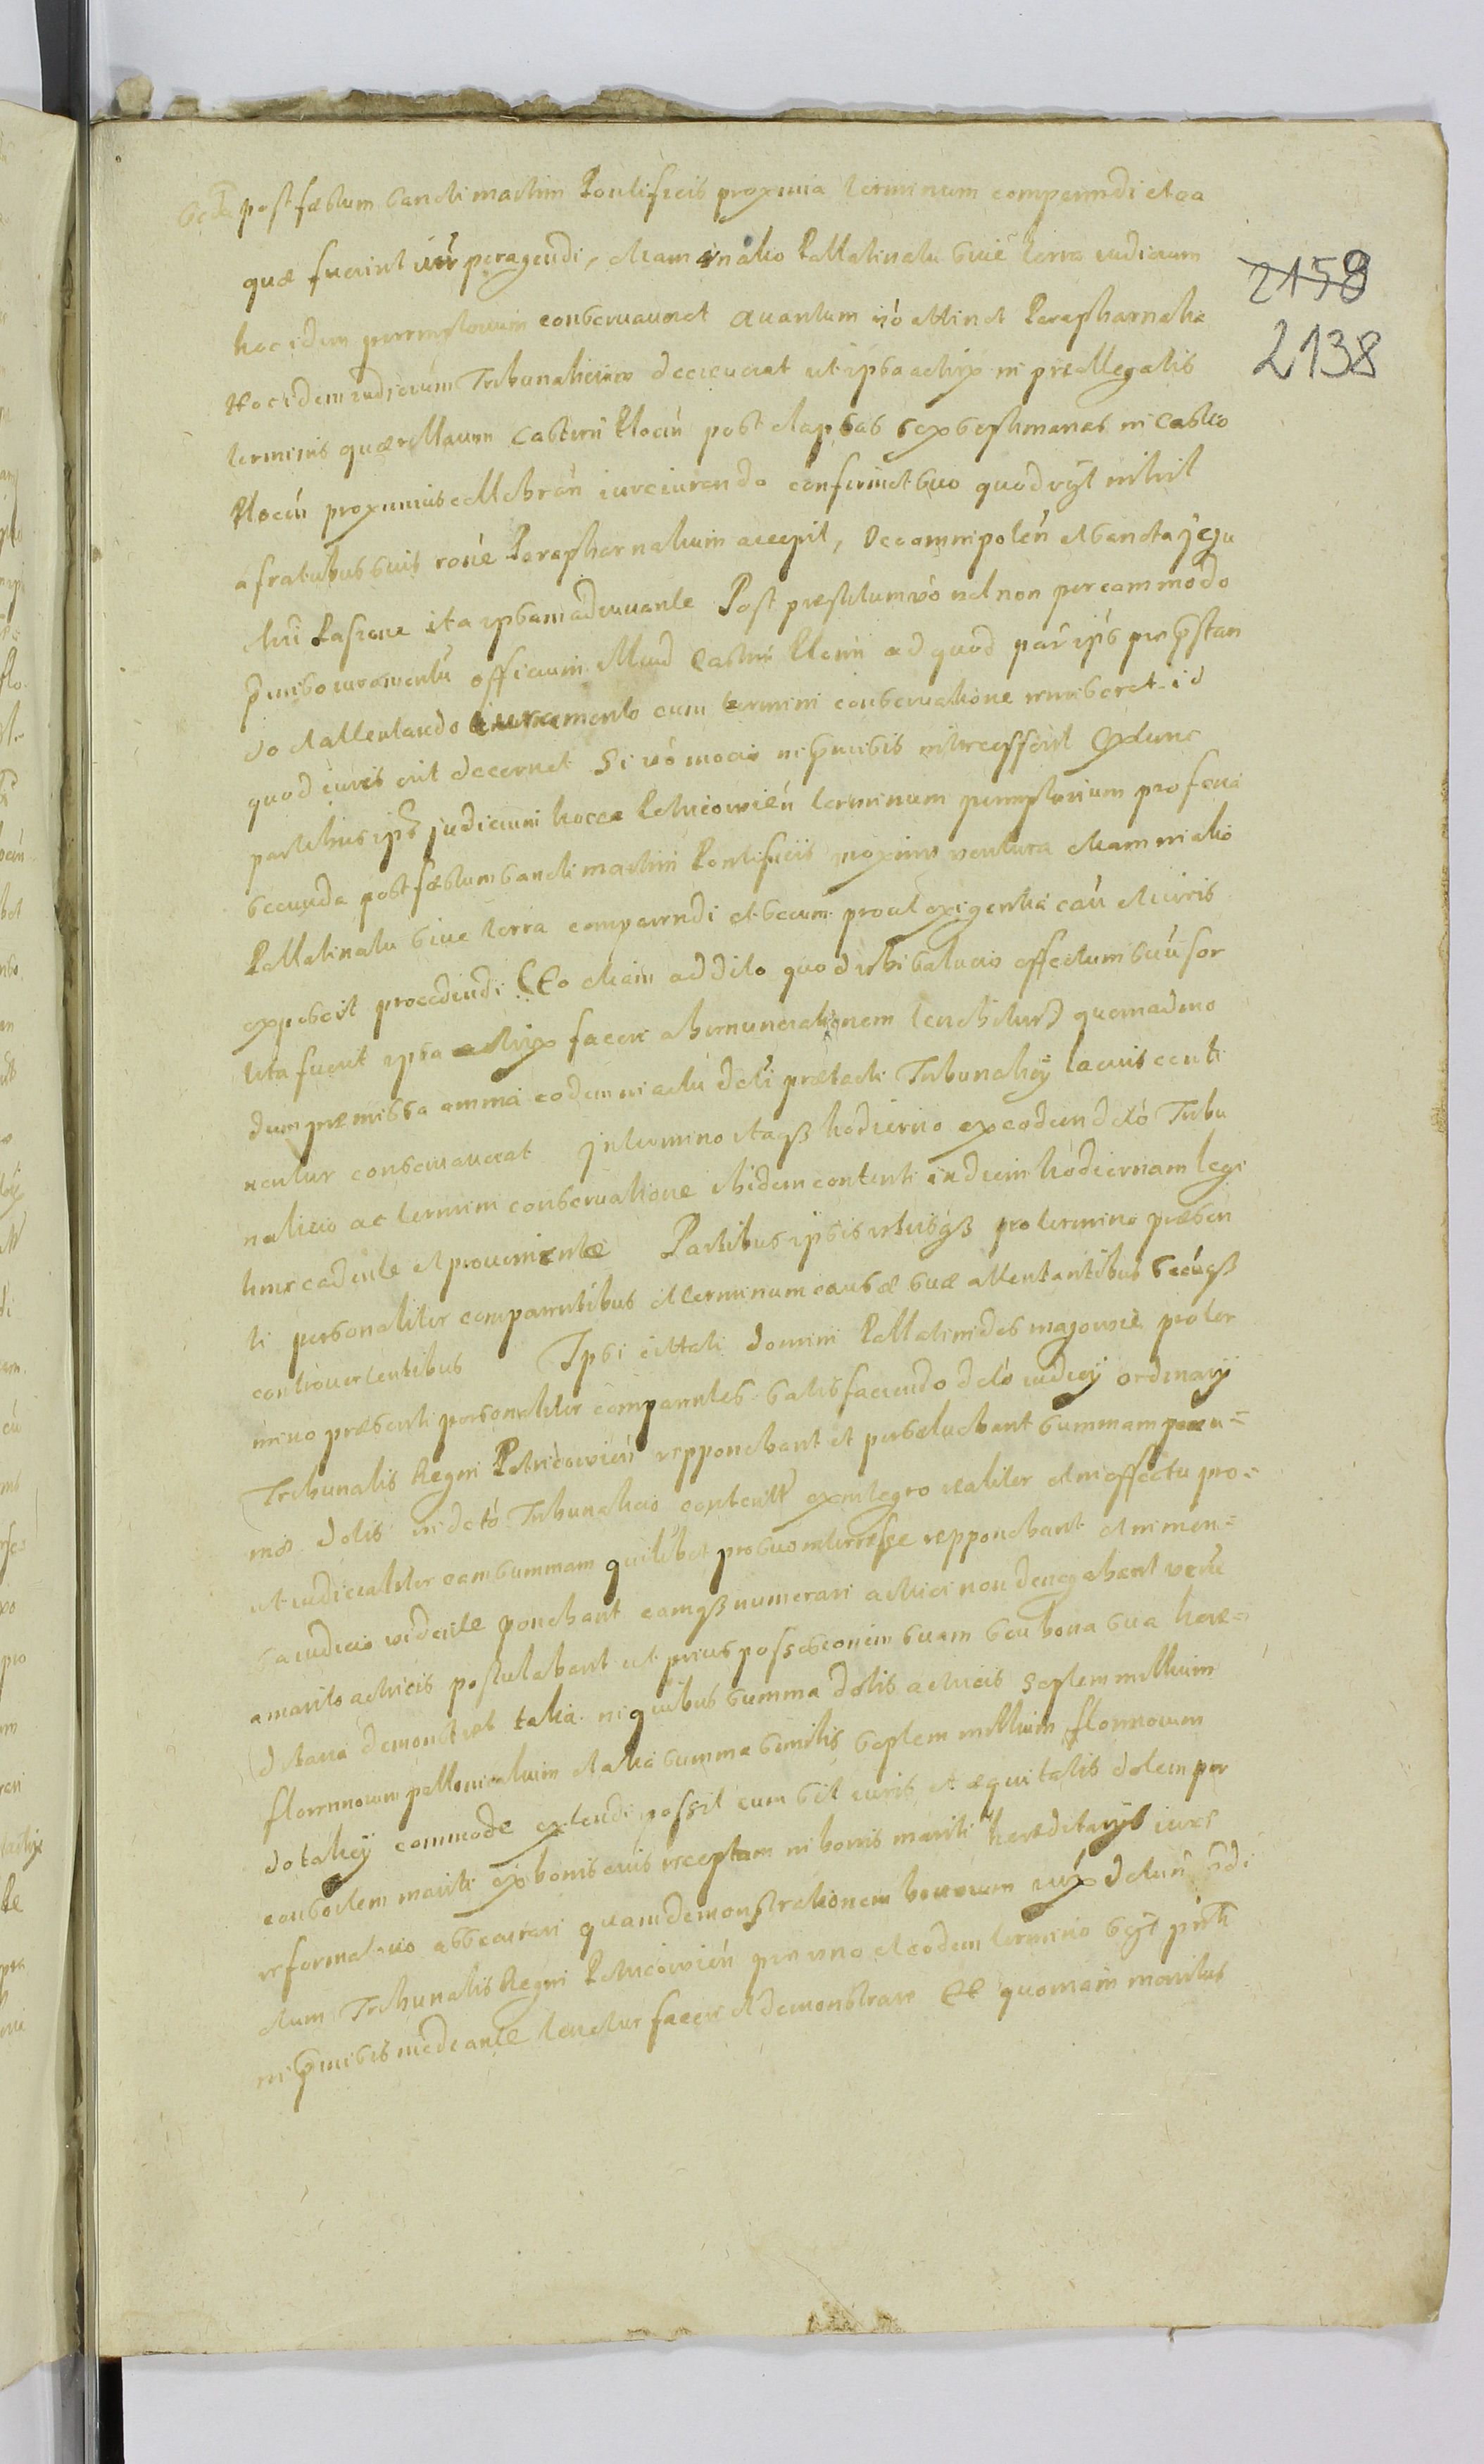 post fæstum Sancti Martini Pontificis proxima terminum comparendi et ea
quæ fuerint iur̃ peragendi, etiam in alio Pallatinatu siue terra iudicium
hoc idem peremptorium conseruauerat Quantum v̓o attinet Parapharnalia
Hoc idem iudicium Tribunalicium decreuerat ut ipsa actrix in præallegatis
terminis quærellarum Castren̄ Plocen̄ post elapsas sex septimanas in Castro
Plocen̄ proxumius cellebran̄ iureiurando confirmet suo quod vĳt nihil
a fratribus suis rõne Parapharnalium accepit, Deo omnipoten̄ et Sancta Jesu
Chri Passione ita ipsam adiuuante Post præstitum v̓o vel non per eam modo
p̃misso iuramentũ officium illud Castren̄ Plocen̄ ad quod par ips̃ pro p̃stan
do et attentando iuramento cum termini conseruatione remiserat id
quod iuris erit decernet Si v̓o mocio in p̃missis intercesserit Ex tunc
partibus ips̃ judicium hocce Petricouien̄ terminum peremptorium pro feria
secunda post fæstum Sancti Martini Pontificis proxime ventura etiam in alio
Pallatinatu siue terra comparendi et secum prout exigentia cau̓ et iuris
exposcit procedendi (Eo etiam addito quod ubi satucio effectum suũ sor
tita fuerit ipsa actrix facere abrenunciationem tenebitur) quemadmo
dum præmissa omnia eodem in actu dcti prætacti Tribunalicij lacius conti
nentur conseruauerat In termino itaqʒ hodierno ex eodem dcto Tribu
nalicio ac termini conseruatione ibidem contenti in diem hodiernam legi
time cadente et proueniente Partibus ipsis utrisqʒ pro termino præsen
ti personaliter comparentibus et terminum causæ suæ attentantibus secũqʒ
controuertentibus Ipsi cittati domini Pallatinides Mazouiæ pro ter
mino præsenti personaliter comparentes satisfaciendo dcto iudicij ordinarij
Tribunalis Regni Petricouien̄ repponebant et persoluebant summam pecu=
niæ dotis in dcto Tribunalicio contentã ex integro realiter et in effectu pro=
ut iudicialiter eam summam quilibet pro suo interresse repponebant et in men=
sa iudicio vidente ponebant eamqʒ numerari actrici non denegabant verũ
a marito actricis postulabant ut prius possesionem suam seu bona sua hære=
ditaria demonstret talia in quibus summa dotis actricis septem millium
florenorum pollonicalium et alia summa similis septem millium florenorum
dotalicij commode extendi possit cum sit iuris et æquitatis dotem per
consortem mariti ex bonis eius receptam in bonis mariti hæreditarijs iure
reformatiuo assecurari quam demonstrationem bonorum iux̃ dctum
ctum Tribunalis Regni Petricouien̄ pro uno et eodem termino
in p̃missis mediante tenetur facere et demonstrare Et quoniam maritus
2158
2138